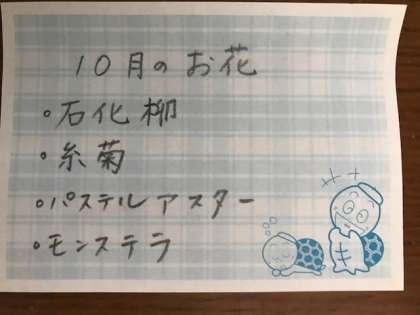 10月のお花
・石化柳
・糸菊
・パステルアスター
・モンステラ